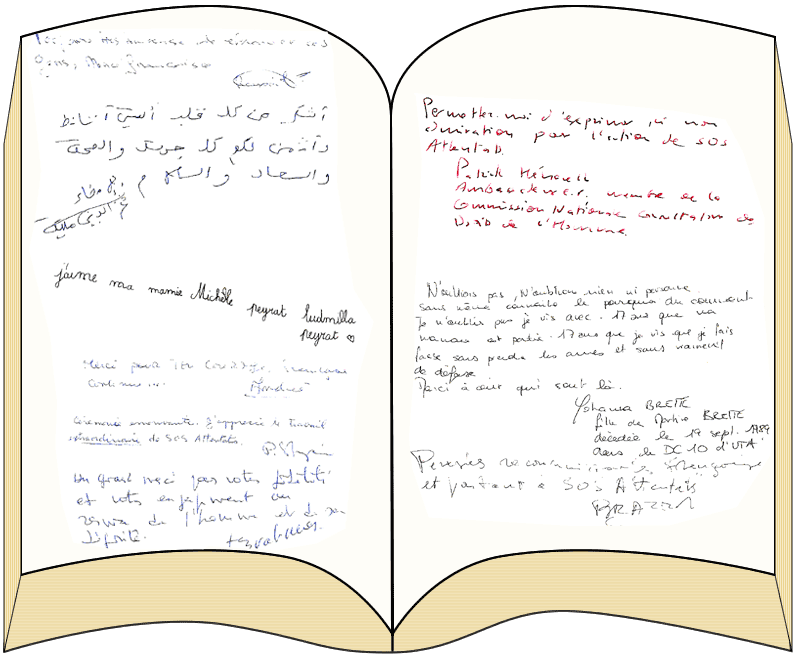 gens, Mme Françoise
أشكر من كل قلب
وأتمنى لكو كل
والسعاد والسلام
j'aime ma mamie Michèle peyrat ludmilla
peyrat
Merci pour ton courage. Françoise
Continue ...
Cérémonie émouvante. J'apprécie le travail
extraordinaire de SOS Attentats.
Un grand merci pour votre fidélité
et votre engagement au
service de l'homme et de sa
dignité.
Permettez-moi d'exprimer ici mon
admiration pour l'action de SOS
Attentats.
Patrick Hénault
Ambassadeur, membre de la
Commission Nationale Consultative des
Droits de l'Homme.
N'oublions pas, N'oublions rien ni personne.
Sans même connaître le pourquoi du comment
Je n'oublie pas je vis avec. 17 ans que ma
maman est partie. 17 ans que je vis que je fais
face sans prendre les armes et sans vraiment
de défense
Merci à ceux qui sont là.
Yohanna BRETTE
fille de Martine BRETTE
décédée le 19 sept. 1989
dans le DC 10 d'UTA
Pensées
et partout à SOS Attentats